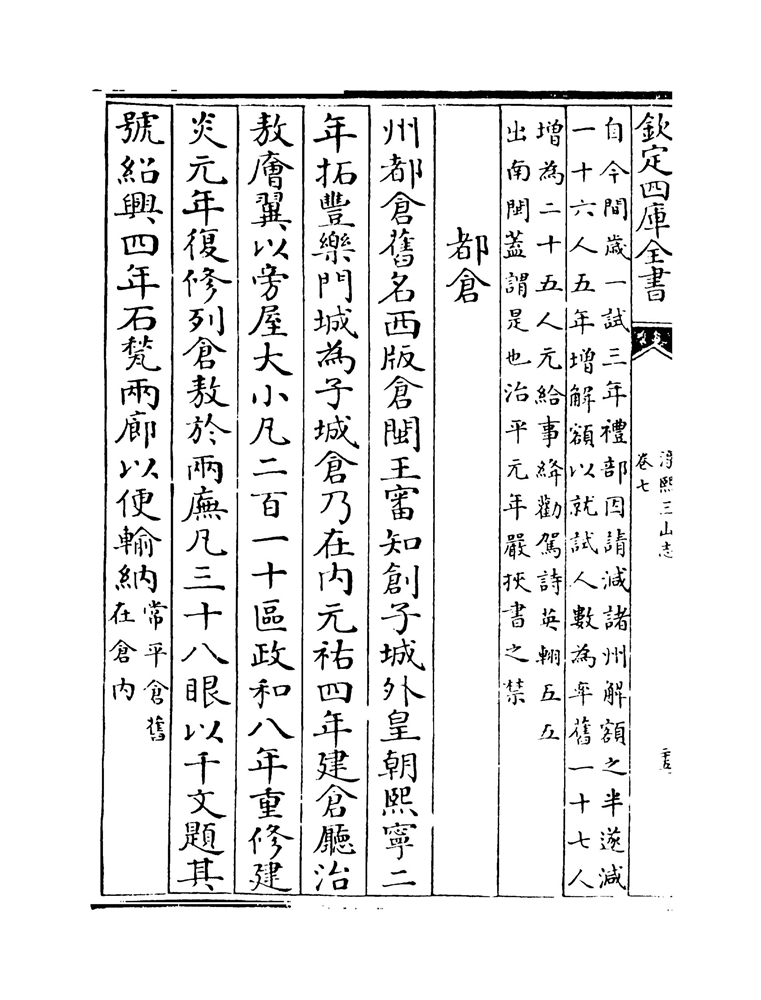 欽定四庫全書
淳熙三山志
卷七
自今間歲一試三年禮部因請減諸州解額之半遂減
一十六人五年增解額以就試人數為率舊一十七人
增為二十五人元給事絳勸駕詩英翺五五
出南閩蓋謂是也治平元年嚴挾書之禁
都倉
州都倉舊名西版倉閩王審知創子城外皇朝熙寧二
年拓豐樂門城為子城倉乃在内元祐四年建倉廳治
敖廥翼以旁屋大小凡二百一十區政和八年重修建
炎元年復修列倉敖於兩廡凡三十八眼以千文題其
號紹興四年石甃兩廊以便輸納
常平倉舊
在倉内